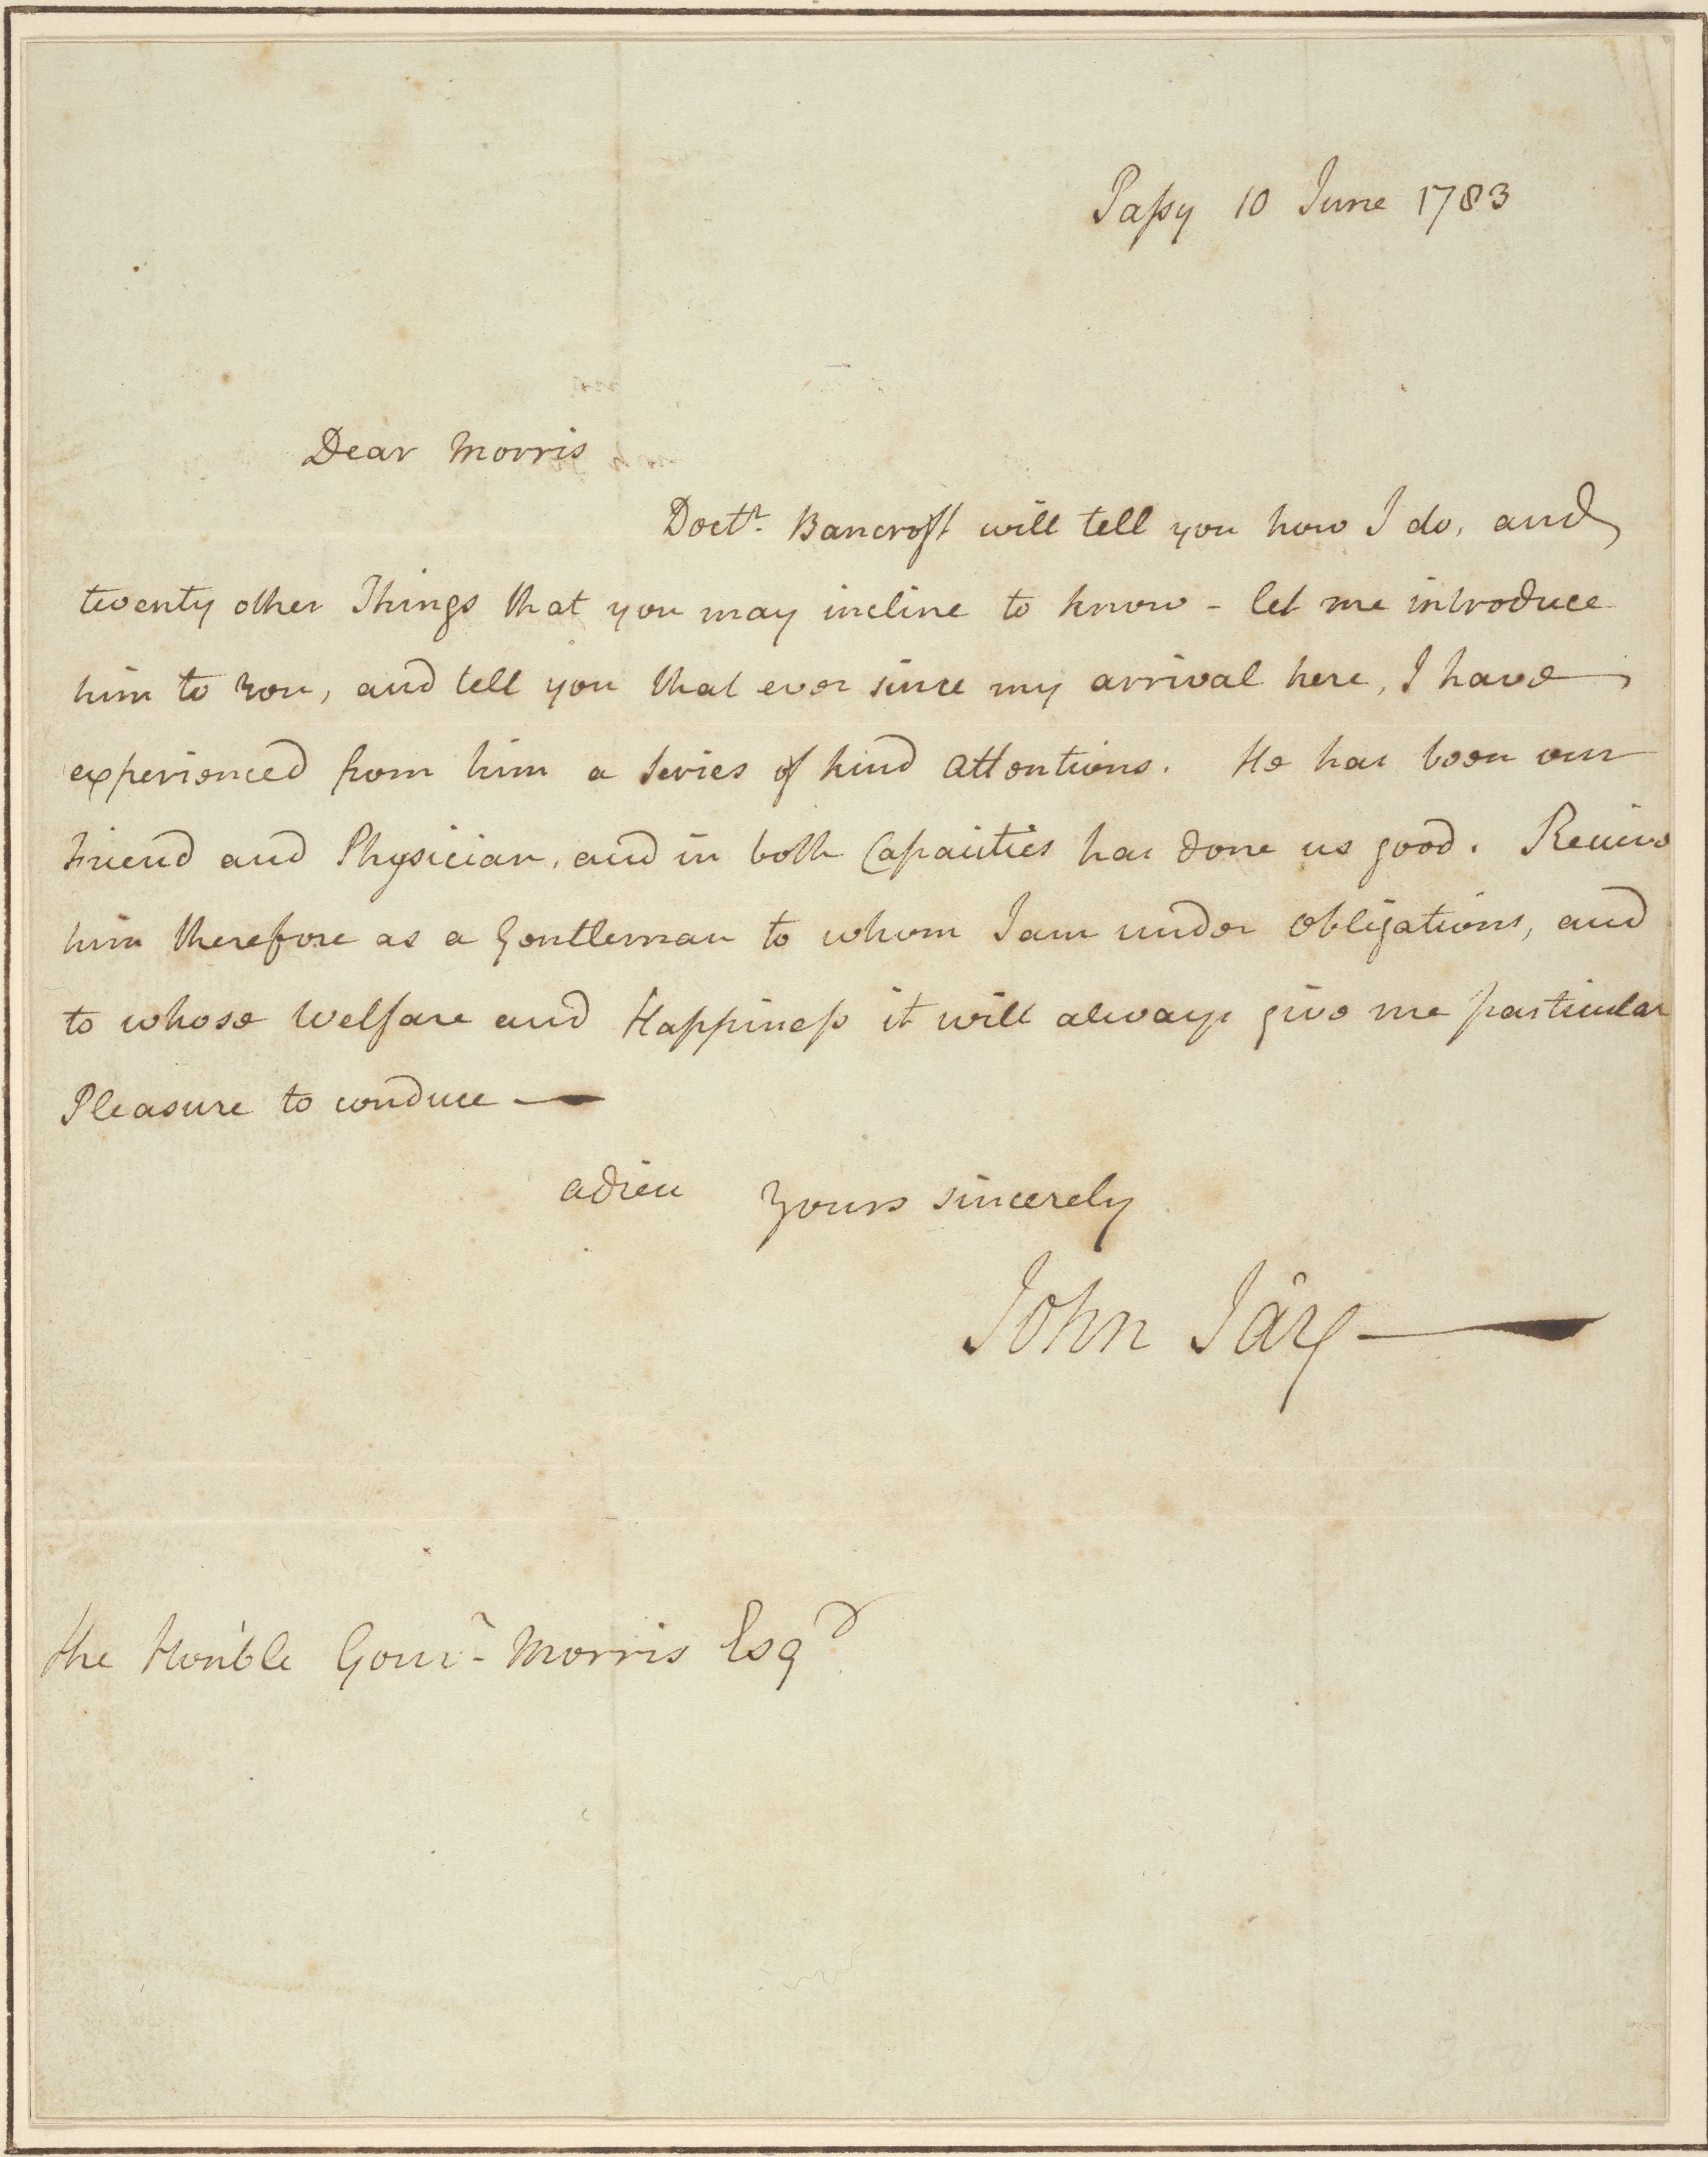 Passy 10 June 1783
Dear Morris
Doctr. Bancroft will tell you how I do, and
twenty other Things that you may incline to know - let me introduce
him to you, and tell you that ever since my arrival here, I have
experienced from him a Series of kind attentions. He has been our
Friend and Physician, and in both Capacities has done us good. Recieve
him therefore as a Gentleman to whom I am under obligations, and
to whose Welfare and Happiness it will always give me particular
Pleasure to conduce —
adieu Yours sincerely
John Jay
The Hon'ble Gouvr. Morris Esqr